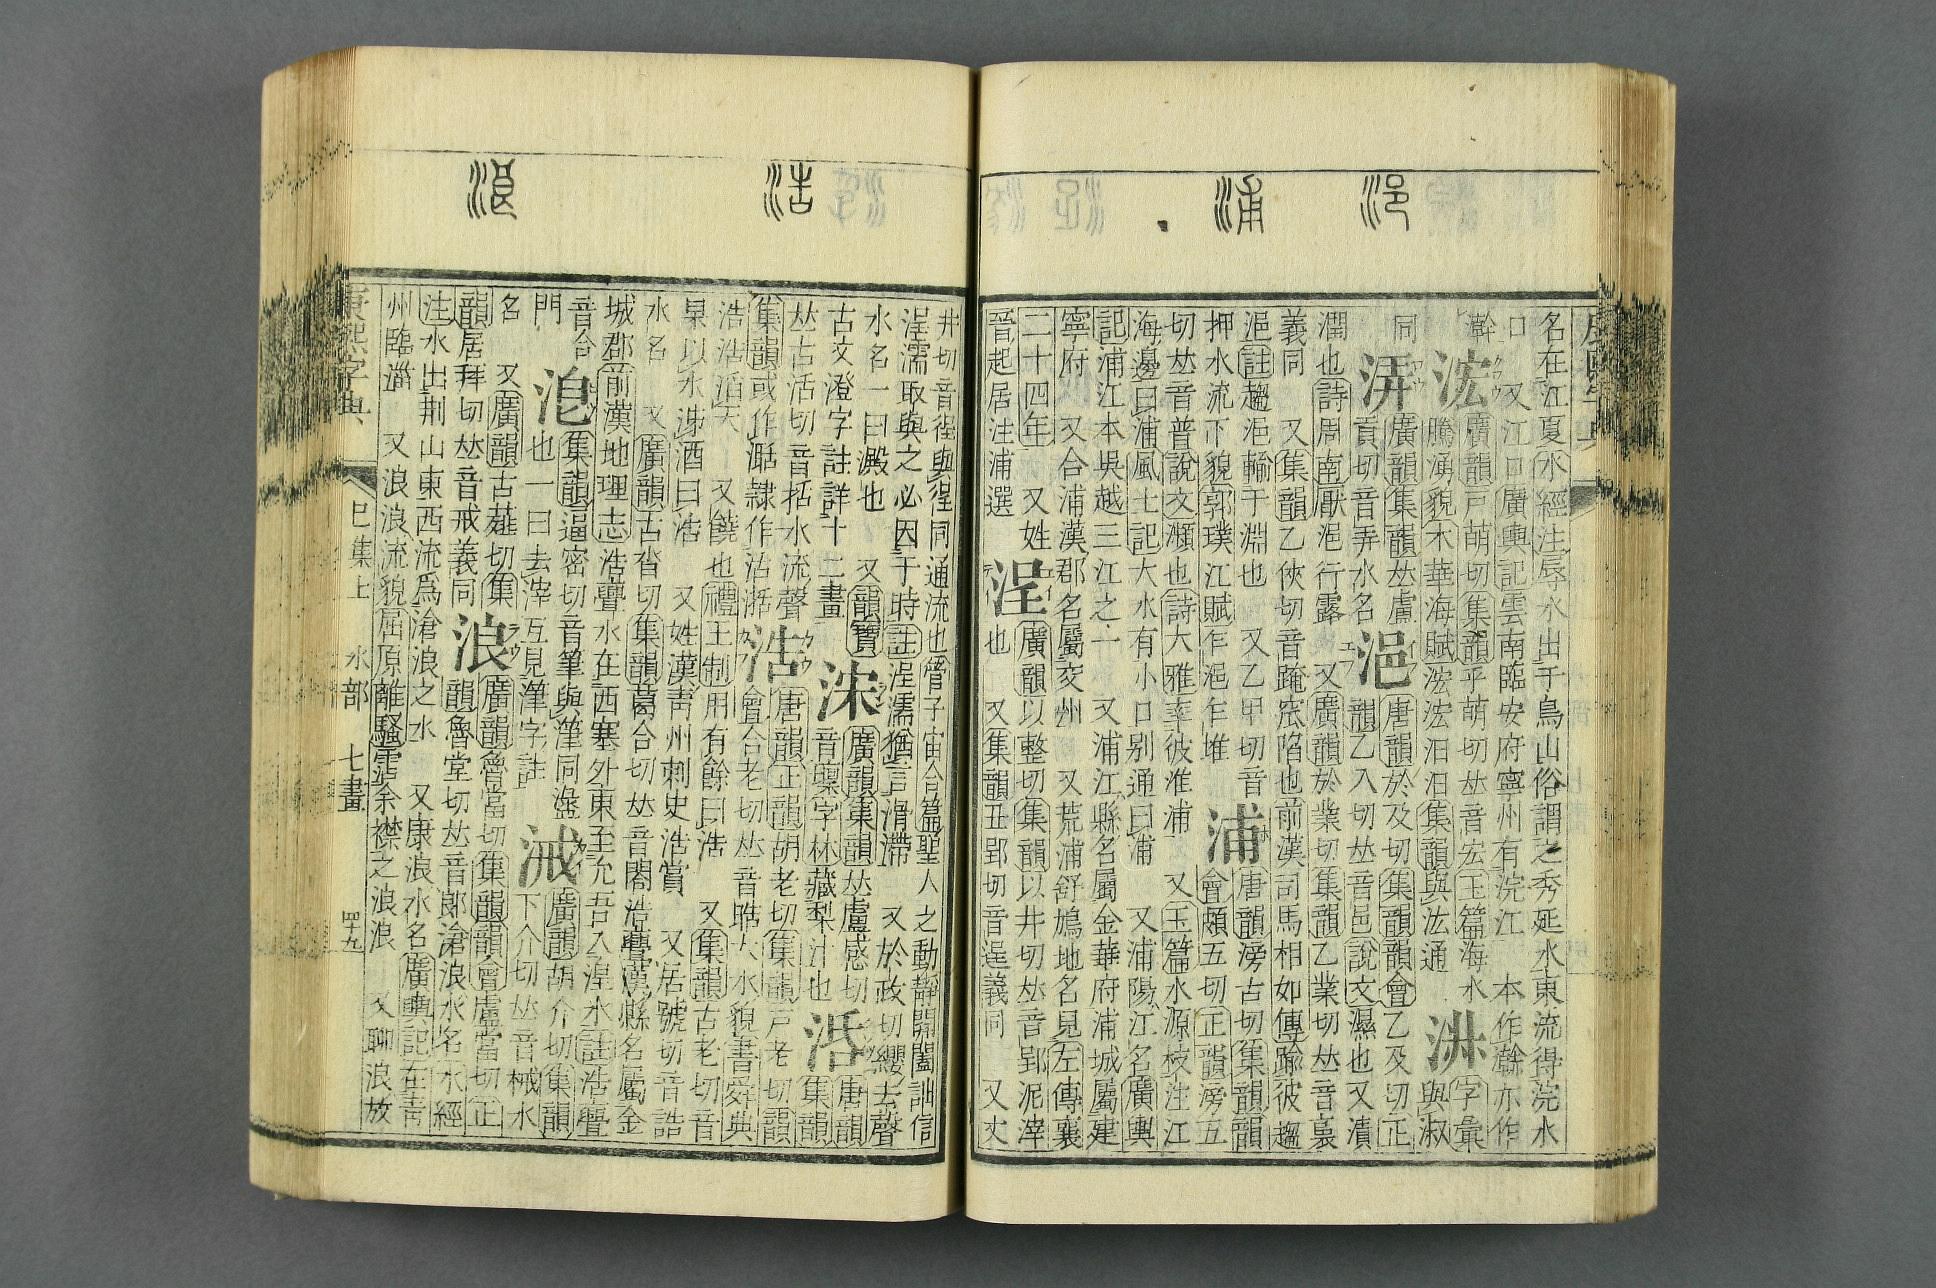 浥
浦
名在江夏水經注辱水出于鳥山俗謂之秀延水東流得浣水
口 又江口廣輿記雲南臨安府寧州有浣江 本作澣亦作
浤 廣韻戸萌切集韻乎萌切𠀤音宏玉篇海水
騰湧貌木華海賦浤浤汨汨集韻與汯通
淋 字彙
與淑
同
浜 廣韻集韻𠀤盧
貢切音弄水名
浥 唐韻於及切集韻韻會乙及切正
韻乙入切𠀤音邑說文濕也又漬
潤也詩周南厭浥行露 又廣韻於業切集韻乙業切𠀤音裛
義同 又集韻乙俠切音𨂁窊陷也前漢司馬相如傳踰彼趨
浥註趨浥輸于淵也 又乙甲切音
押水流下貌郭璞江賦乍浥乍堆
浦 唐韻滂古切集韻韻
會頗五切正韻滂五
切𠀤音普說文瀕也詩大雅率彼淮浦 又玉篇水源枝注江
海邊曰浦風土記大水有小口别通曰浦 又浦陽江名廣輿
記浦江本吳越三江之一 又浦江縣名屬金華府浦城屬建
寧府 又合浦漢郡名屬交州 又荒浦舒鳩地名見左傳襄
二十四年 又姓
晉起居注浦選
浧 廣韻以整切集韻以井切𠀤音郢泥滓
也 又集韻丑郢切音逞義同 又丈
浩
浪
井切音徎與徎同通流也管子宙合篇聖人之動靜開闔詘信
浧濡取與之必因于時註浧濡猶言滑滯 又於政切纓去聲
水名一曰澱也 又韻寶
古文澄字註詳十二畫
浨 廣韻集韻𠀤盧感切
音壈字林藏梨汁也
浯 唐韻
集韻
𠀤古活切音括水流聲
集韻或作濶隷作活湉
浩 唐韻正韻胡老切集韻戸老切韻
會合老切𠀤音晧大水貌書舜典
浩浩滔天 又饒也禮王制用有餘曰浩 又集韻古老切音
杲以水渉酒曰浩 又姓漢靑州刺史浩賞 又居號切音誥
水名 又廣韻古沓切集韻葛合切𠀤音閤浩亹漢縣名屬金
城郡前漢地理志浩亹水在西塞外東至允吾入湟水註浩亹
音合
門
浥 集韻逼密切音筆與潷同盪
也一曰去滓互見潷字註
㳦 廣韻胡介切集韻
下介切𠀤音械水
名 又廣韻古薤切集
韻居拜切𠀤音戒義同
浪 廣韻魯當切集韻韻會盧當切正
韻魯堂切𠀤音郞滄浪水名水經
注水出荆山東西流爲滄浪之水 又康浪水名廣輿記在靑
州臨淄 又浪浪流貌屈原離騷霑余襟之浪浪 又聊浪放
康熙字典 巳集上 水部 七畫 四十九